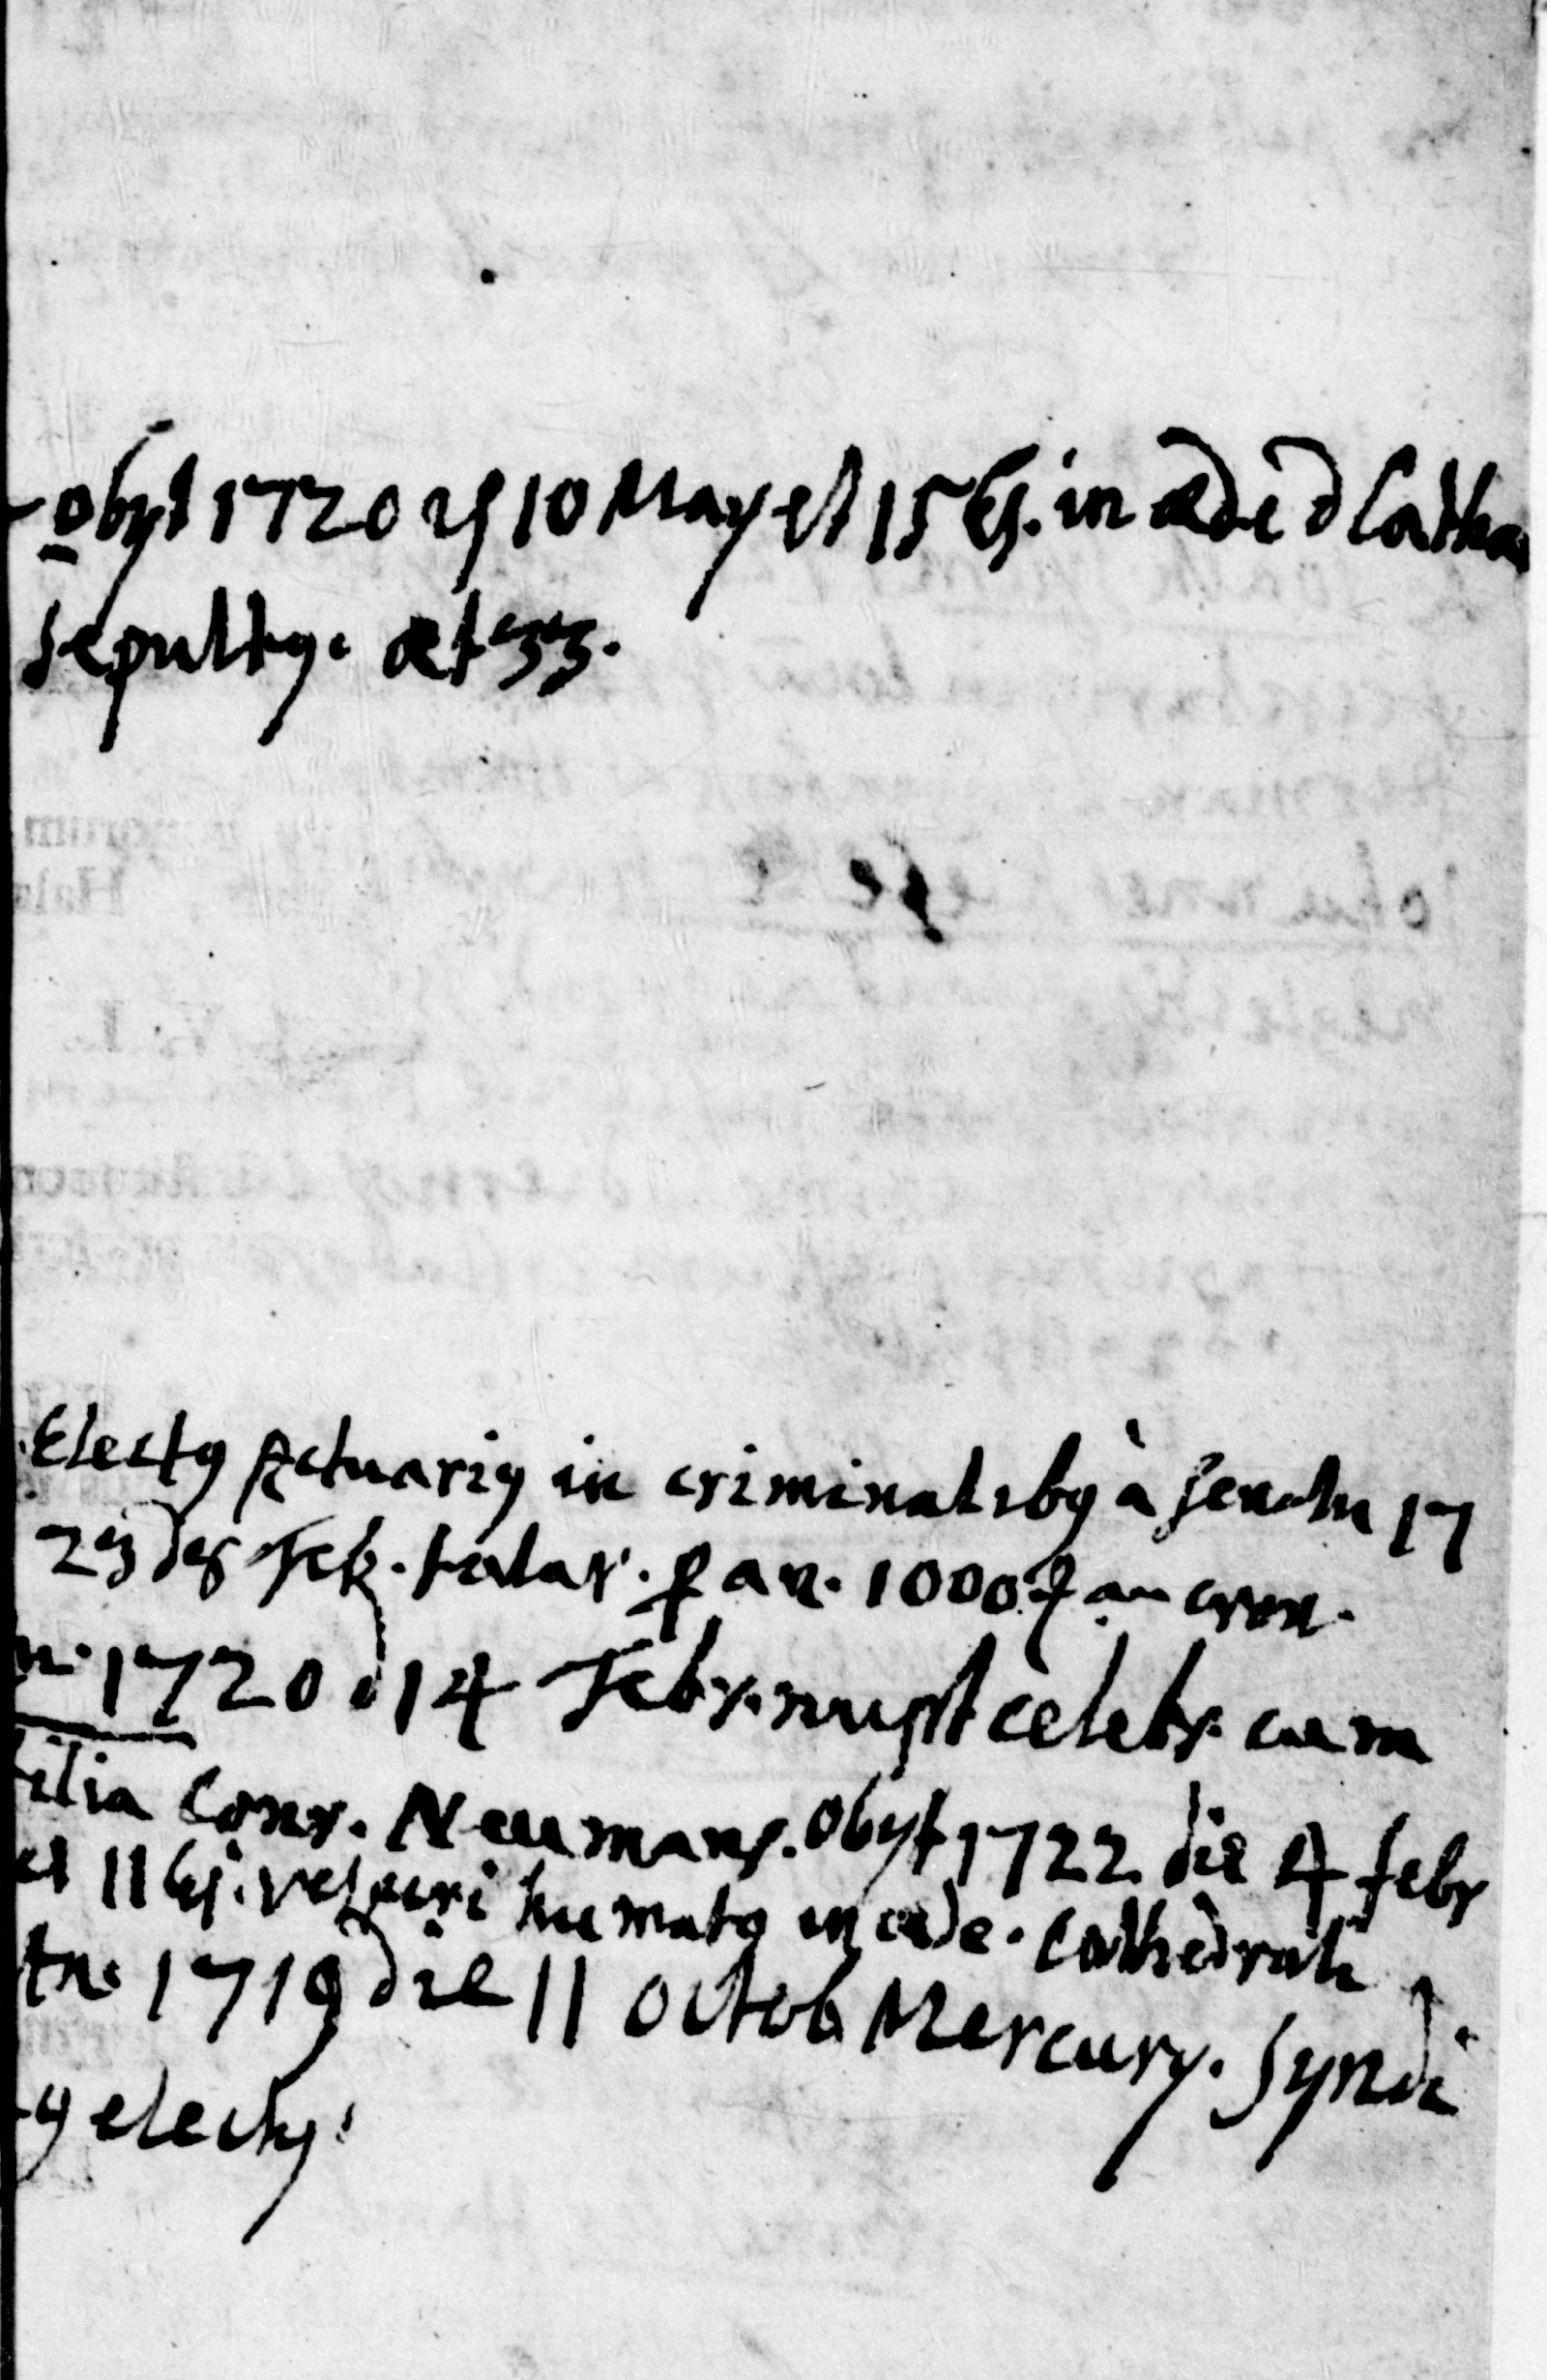 obyt 1720 ♃ 10 May et 15 Ej. in æde d Catha
sepultꝰ. æt 33.
Electꝰ Actuariꝰ in criminalibꝰ à senatu 17
23 Feb. salar. ꝑ an. 1000
n. 1720 d 14 Febr. nupt celebr. cum
filia Cons. Neumans. obyt 1722 die 4 febr
et 11 Ej. humatꝰ in æde. cathedrali
An. 1719 die 11 Octob Mercurÿ. Syndi
ꝰ electꝰ.